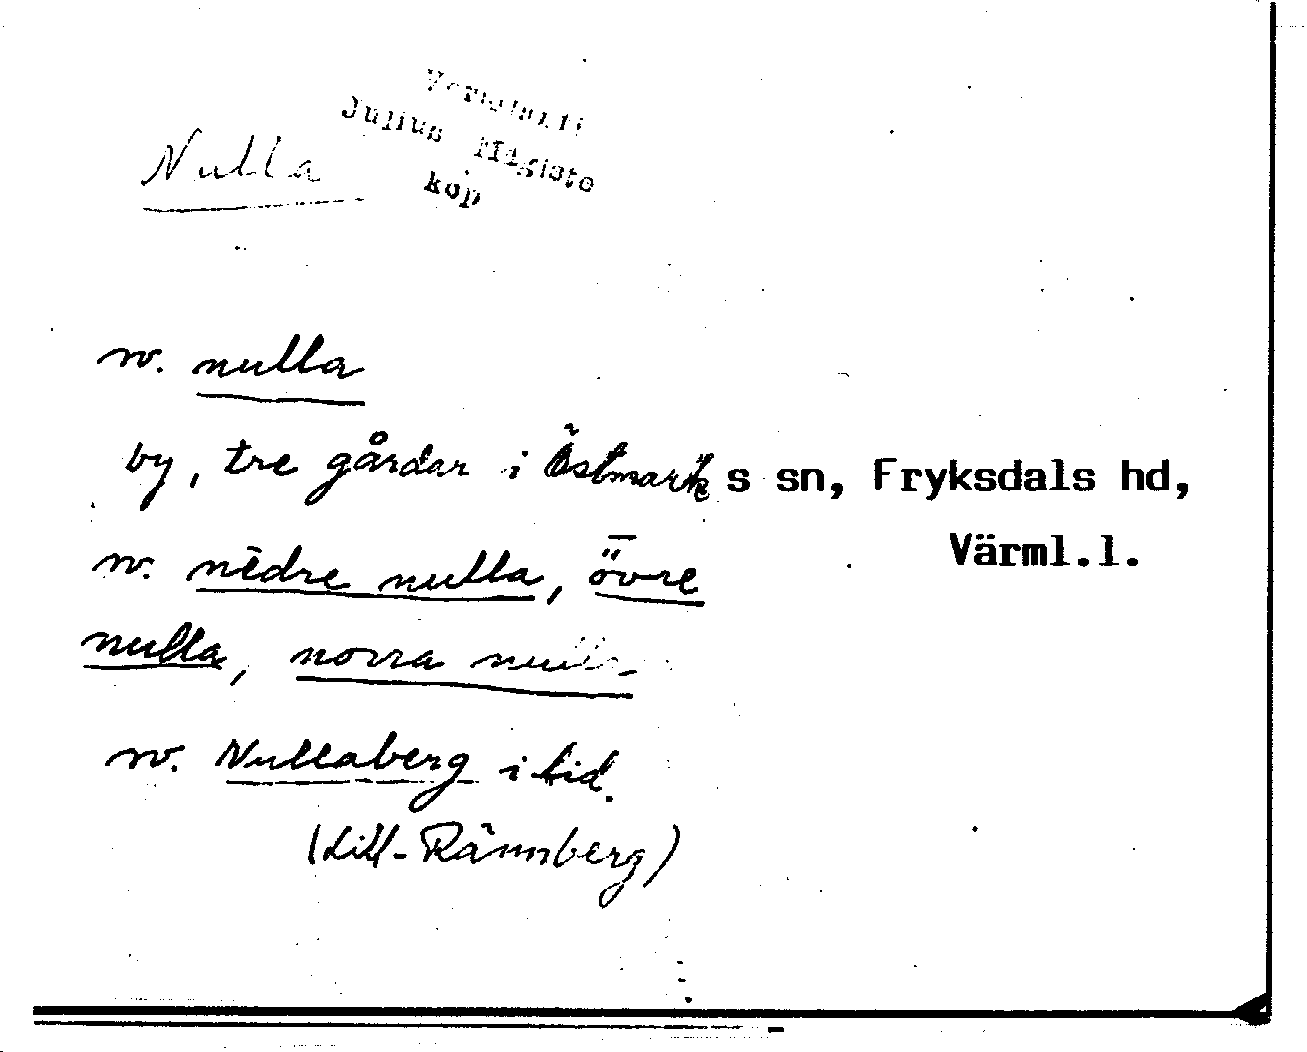 Nulla
Vermlanti
Julius Mägiste
kop
w. nulla
by, tre gårdar i Östmarks sn, Fryksdals hd,
Värml.l.
w. nēdre nulla, övre
nulla, norra nulla
w. Nullaberg i Lid.
(Lill-Rännberg)